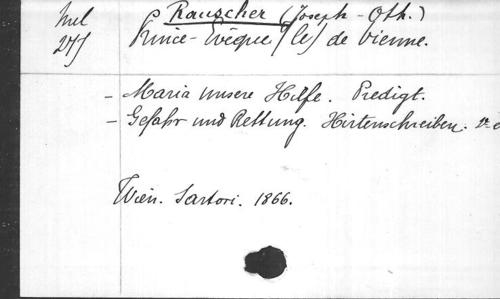 Mel Rauscher (Joseph-Oth.)
275 Prince-Evêque (le) de Vienne.
- Maria unsere Hilfe. Predigt.
- Gefahr und Rettung. Hirtenschreiben.
Wien. Sartori. 1866.